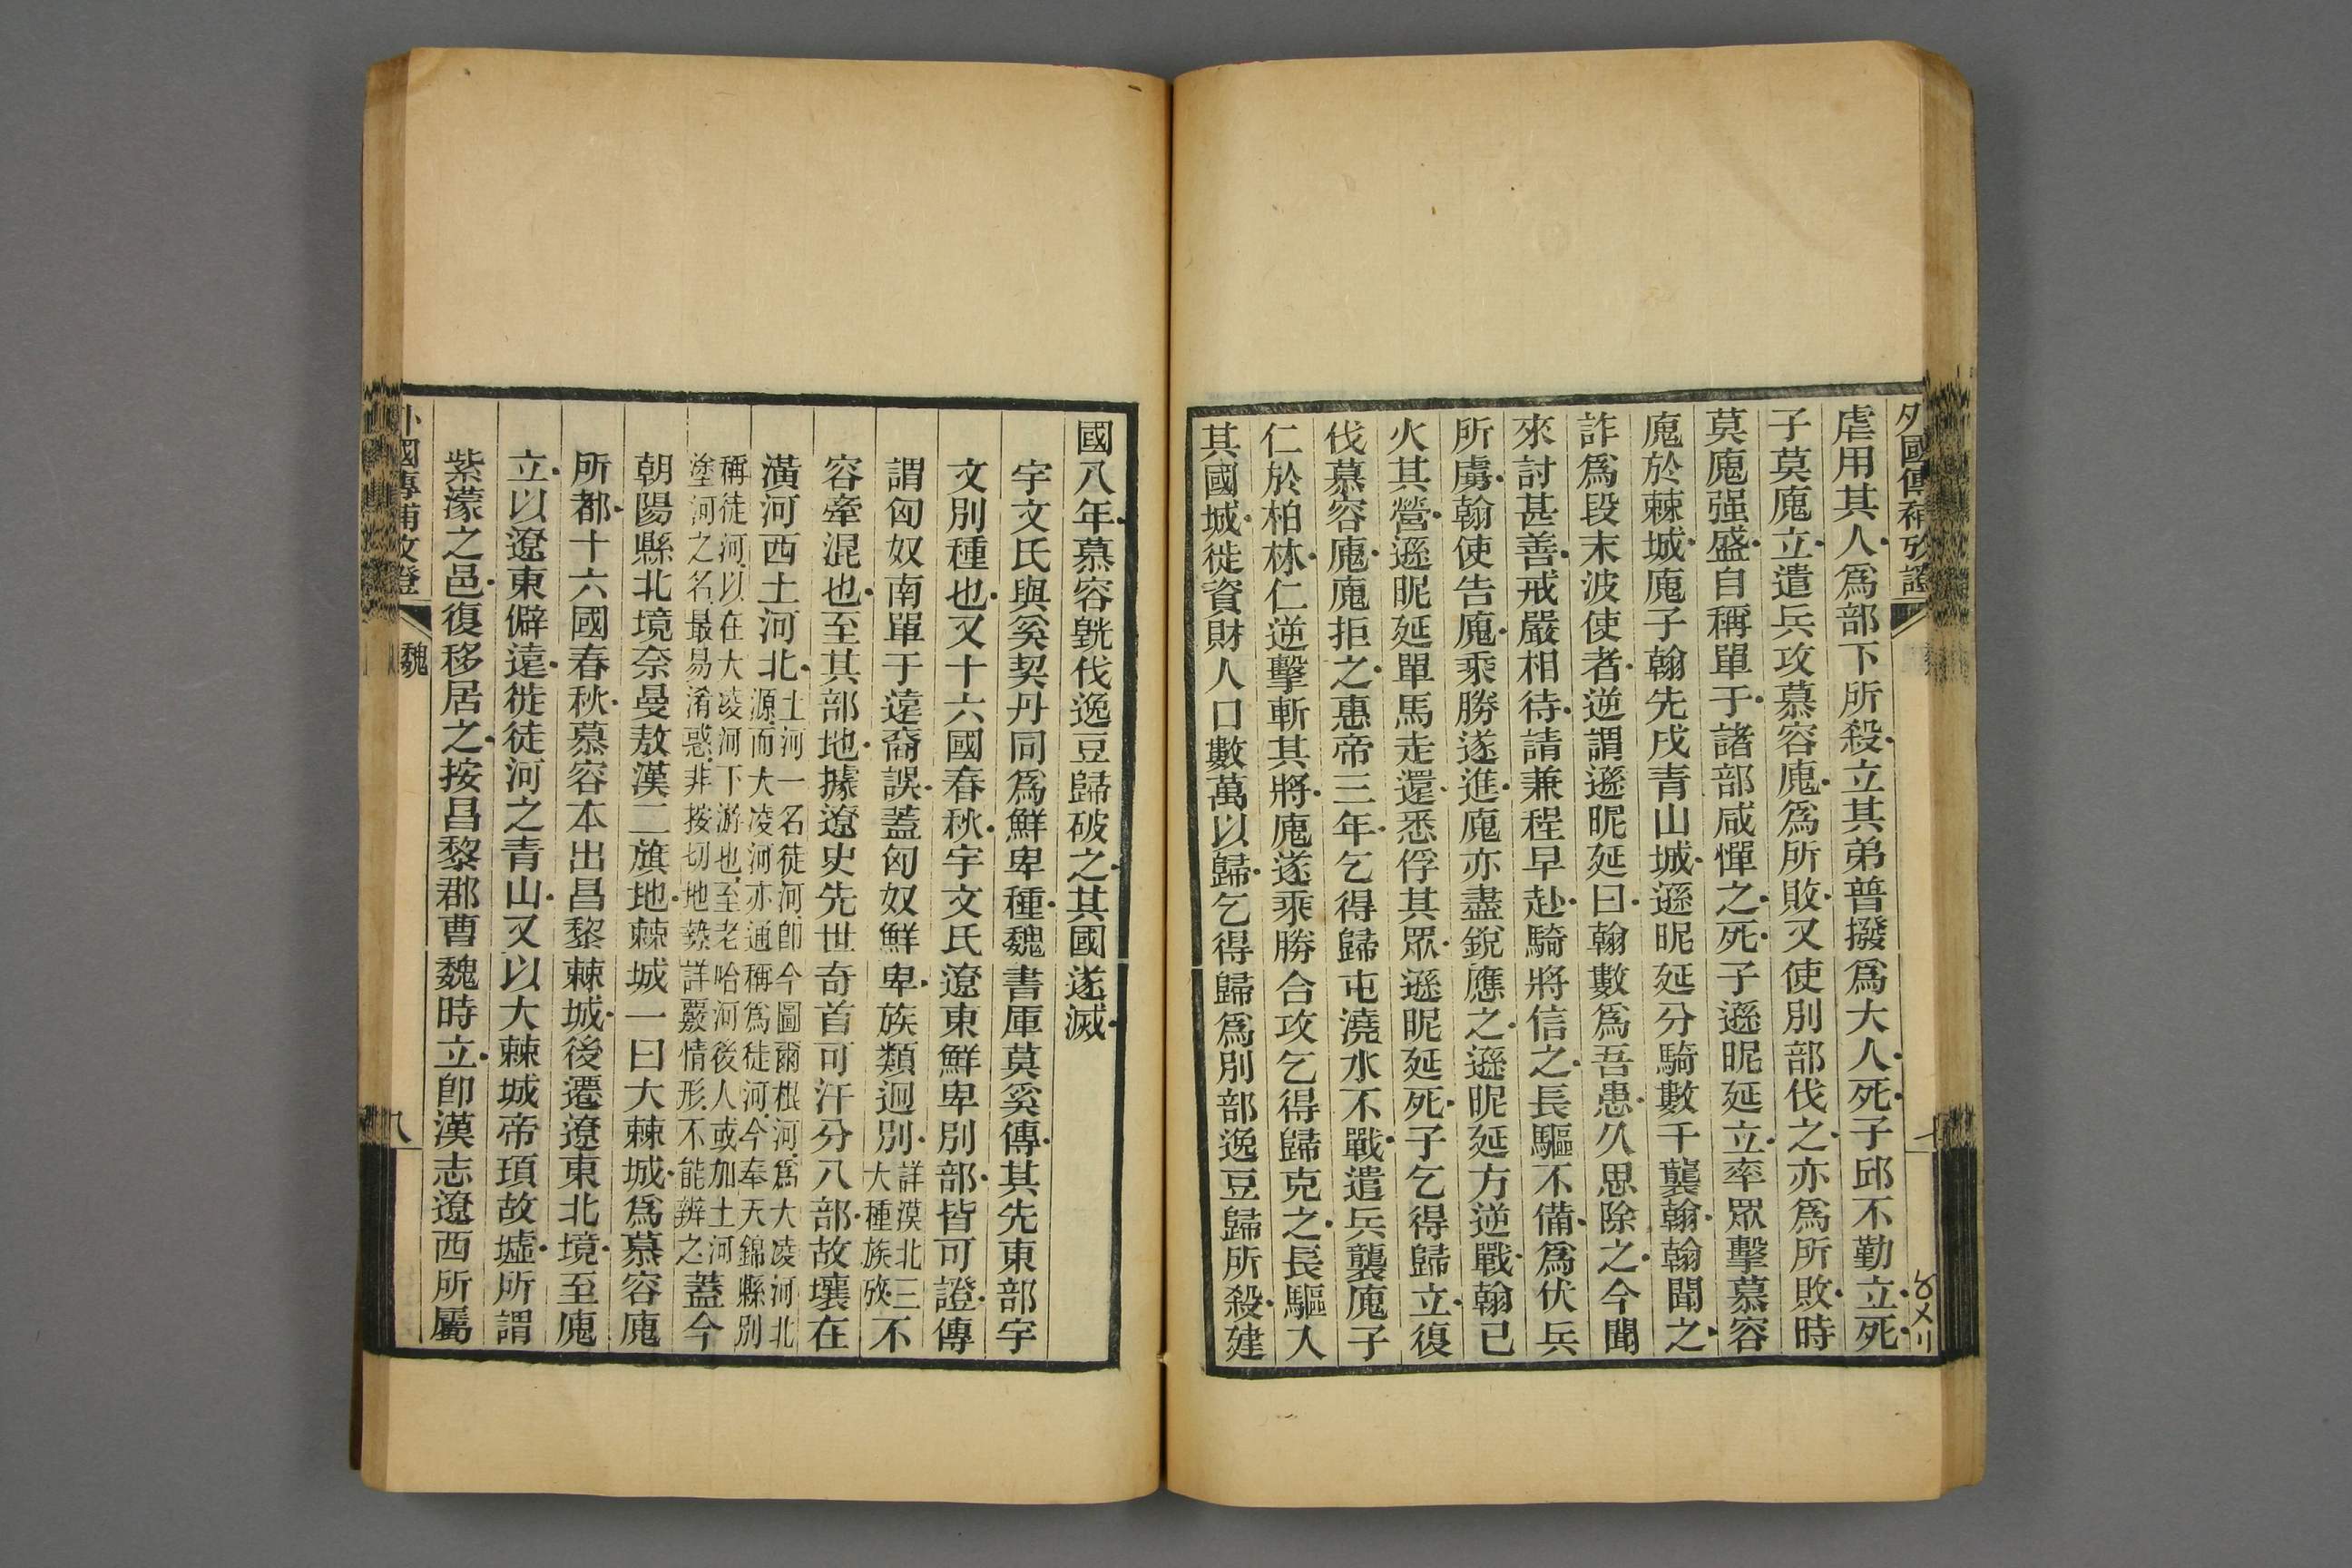 外國傳補攷證
虐用其人爲部下所殺立其弟普撥爲大人死子邱不勤立死
子莫廆立遣兵攻慕容廆爲所敗又使別部伐之亦爲所敗時
莫廆强盛自稱單于諸部咸憚之死子遜昵延立率眾擊慕容
廆於棘城廆子翰先戍青山城遜昵延分騎數千襲翰翰聞之
詐爲段末波使者逆謂遜昵延曰翰數爲吾患久思除之今聞
來討甚善戒嚴相待請兼程早赴騎將信之長驅不備爲伏兵
所虜翰使告廆乘勝遂進廆亦盡銳應之遜昵延方逆戰翰已
火其營遜昵延單馬走還悉俘其眾遜昵延死子乞得歸立復
伐慕容廆廆拒之惠帝三年乞得歸屯澆水不戰遣兵襲廆子
仁於柏林仁逆擊斬其將廆遂乘勝合攻乞得歸克之長驅入
其國城徙資財人口數萬以歸乞得歸爲別部逸豆歸所殺建
國八年慕容皝伐逸豆歸破之其國遂滅
宇文氏與奚契丹同爲鮮卑種魏書庫莫奚傳其先東部宇
文別種也又十六國春秋宇文氏遼東鮮卑別部皆可證傳
謂匈奴南單于遠裔誤蓋匈奴鮮卑族類迥別詳漠北三大種族攷不
容牽混也至其部地據遼史先世奇首可汗分八部故壤在
潢河西土河北土河一名徒河卽今圖爾根河爲大凌河北源而大凌河亦通稱爲徒河今奉天錦縣別
稱徒河以在大凌河下游也至老哈河後人或加土河塗河之名最易淆惑非按切地勢詳覈情形不能辨之蓋今
朝陽縣北境奈曼敖漢二旗地棘城一曰大棘城爲慕容廆
所都十六國春秋慕容本出昌黎棘城後遷遼東北境至廆
立以遼東僻遠徙徒河之青山又以大棘城帝頊故墟所謂
紫濛之邑復移居之按昌黎郡曹魏時立卽漢志遼西所屬
外國傳補攷證
魏
八